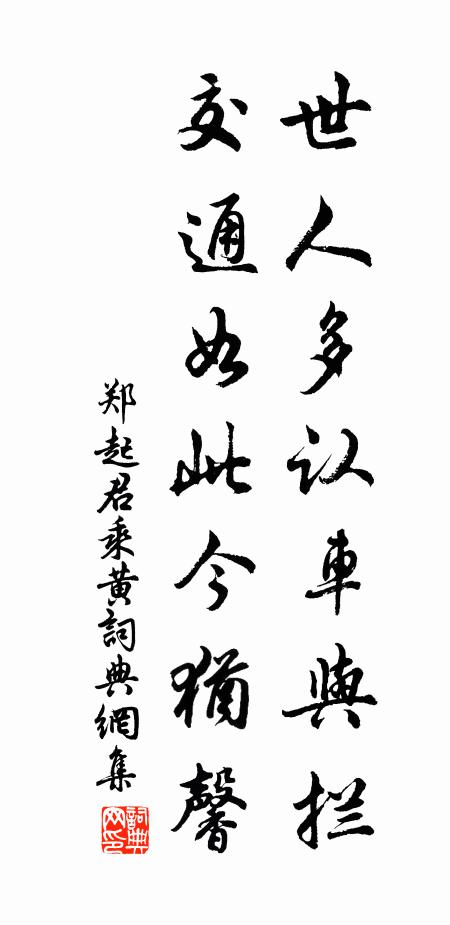 世人多认車與拦
交通如此今猶馨
郑起君乘黄詞典網集
詞典网印